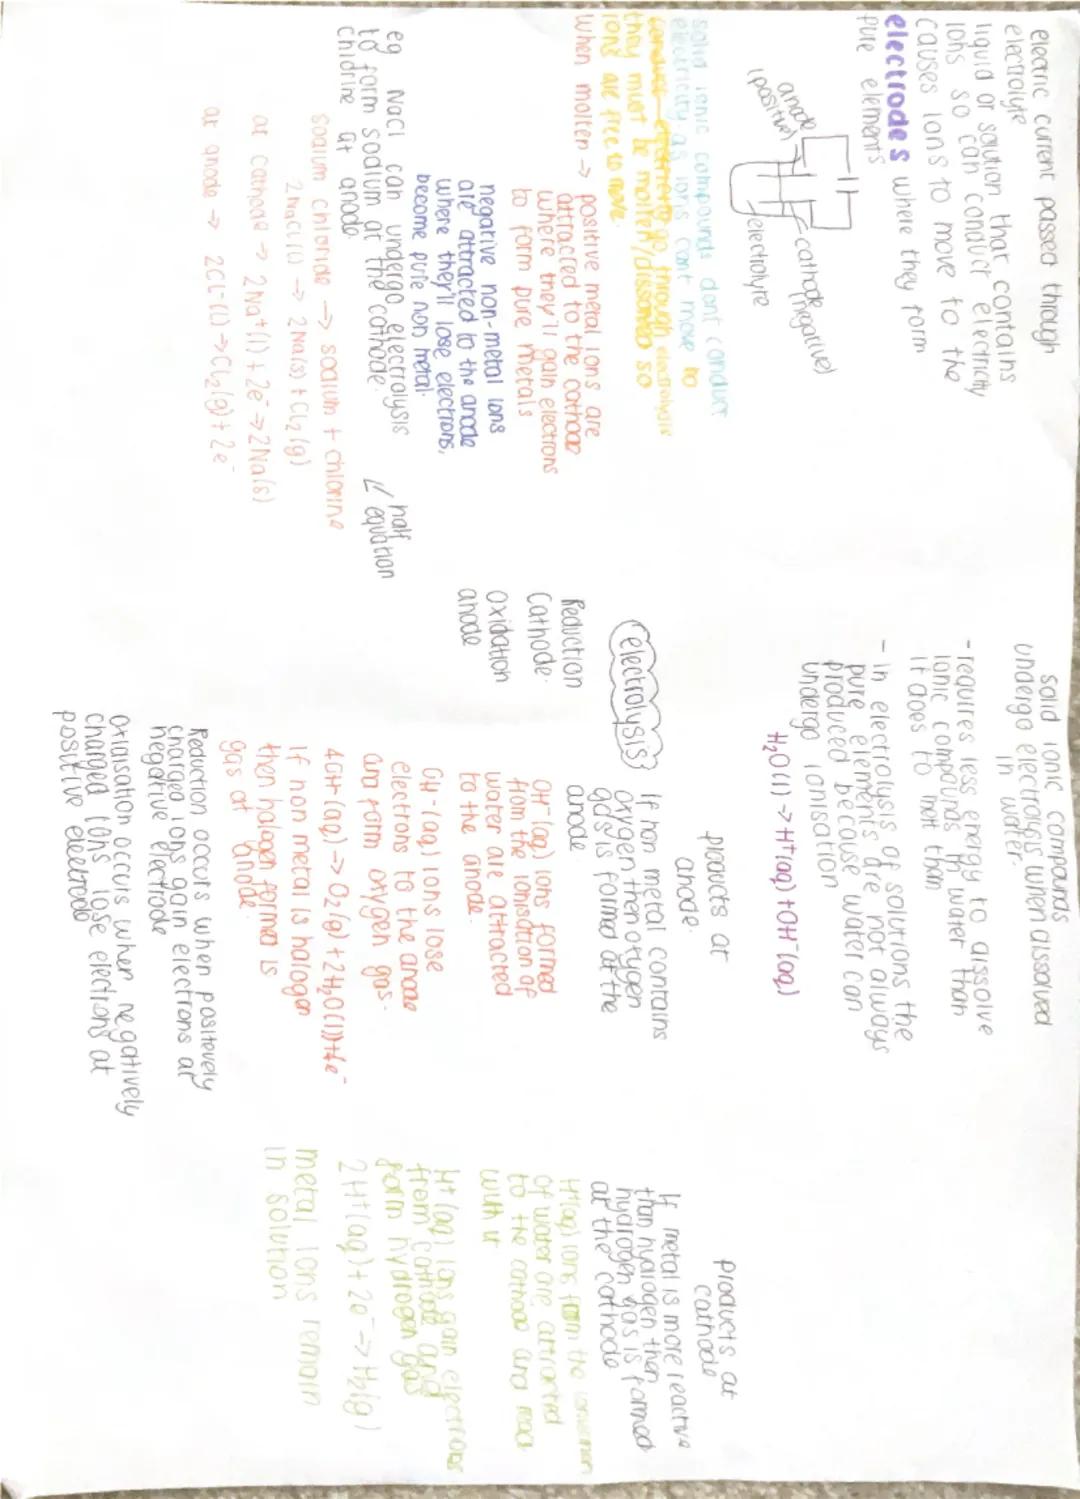 electric current passed through
electrolyte
liquid or solution that contains
ions so can conduct electricity
causes ions to move to the
electrodes where they form
pure elements
anode
(positive)
cathode
(negative)
electrolyte
solid ionic compounds dont conduct
electricity as ions cant move to
through electrolysis
they must be molten/dissolved so
ions are free to move.
when molten -> positive metal ions are
attracted to the cathode
where they'll gain electrons
to form pure metals
negative non-metal ions
are attracted to the anode
where they'll lose electrons,
become pure non metal.
eg NaCl can undergo electrolysis
to form sodium at the cathode.
chlorine at anode
half
equation
sodium chloride -> sodium + chlorine
2NaCl(l) -> 2Na(s) + Cl₂(g)
at cathode -> 2Na⁺(l) + 2e⁻ -> 2Na(s)
at anode -> 2Cl-(l) -> Cl₂(g) + 2e⁻
solid ionic compounds
undergo electrolysis when dissolved
in water.
- requires less energy to dissolve
ionic compounds in water than
it does to melt them
- in electrolysis of solutions the
pure elements are not always
produced because water can
undergo ionisation
H₂O(l) -> H⁺(aq) + OH⁻(aq)
electrolysis
Reduction
Cathode.
Oxidation
anode
products at
anode.
If non metal contains
oxygen then oxygen
gas is formed at the
anode
OH-(aq) ions formed
from the ionisation of
water are attracted
to the anode.
OH-(aq) ions lose
electrons to the anode
and form oxygen gas.
4OH-(aq) -> O₂(g) + 2H₂O(l) + 4e⁻
If non metal is halogen
then halogen formed is
gas at anode.
Reduction occurs when positevely
charged ions gain electrons at
negative electrode
oxidisation occurs when negatively
charged ions lose electrons at
positive electrode
products at
cathode
If metal is more reactive
than hydrogen then
hydrogen gas is formed
at the cathode
H+(aq) ions from the ionisation
of water are attracted
to the cathode and react
with it
H+(aq) ions gain electrons
from cathode and
form hydrogen gas
2H+(aq) + 2e⁻ -> H₂(g)
metal ions remain
in solution